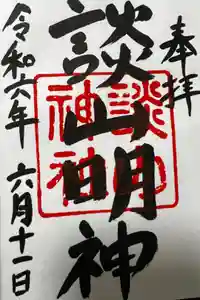 奉拝
談山明神
談山
神社
令和六年 六月十一日